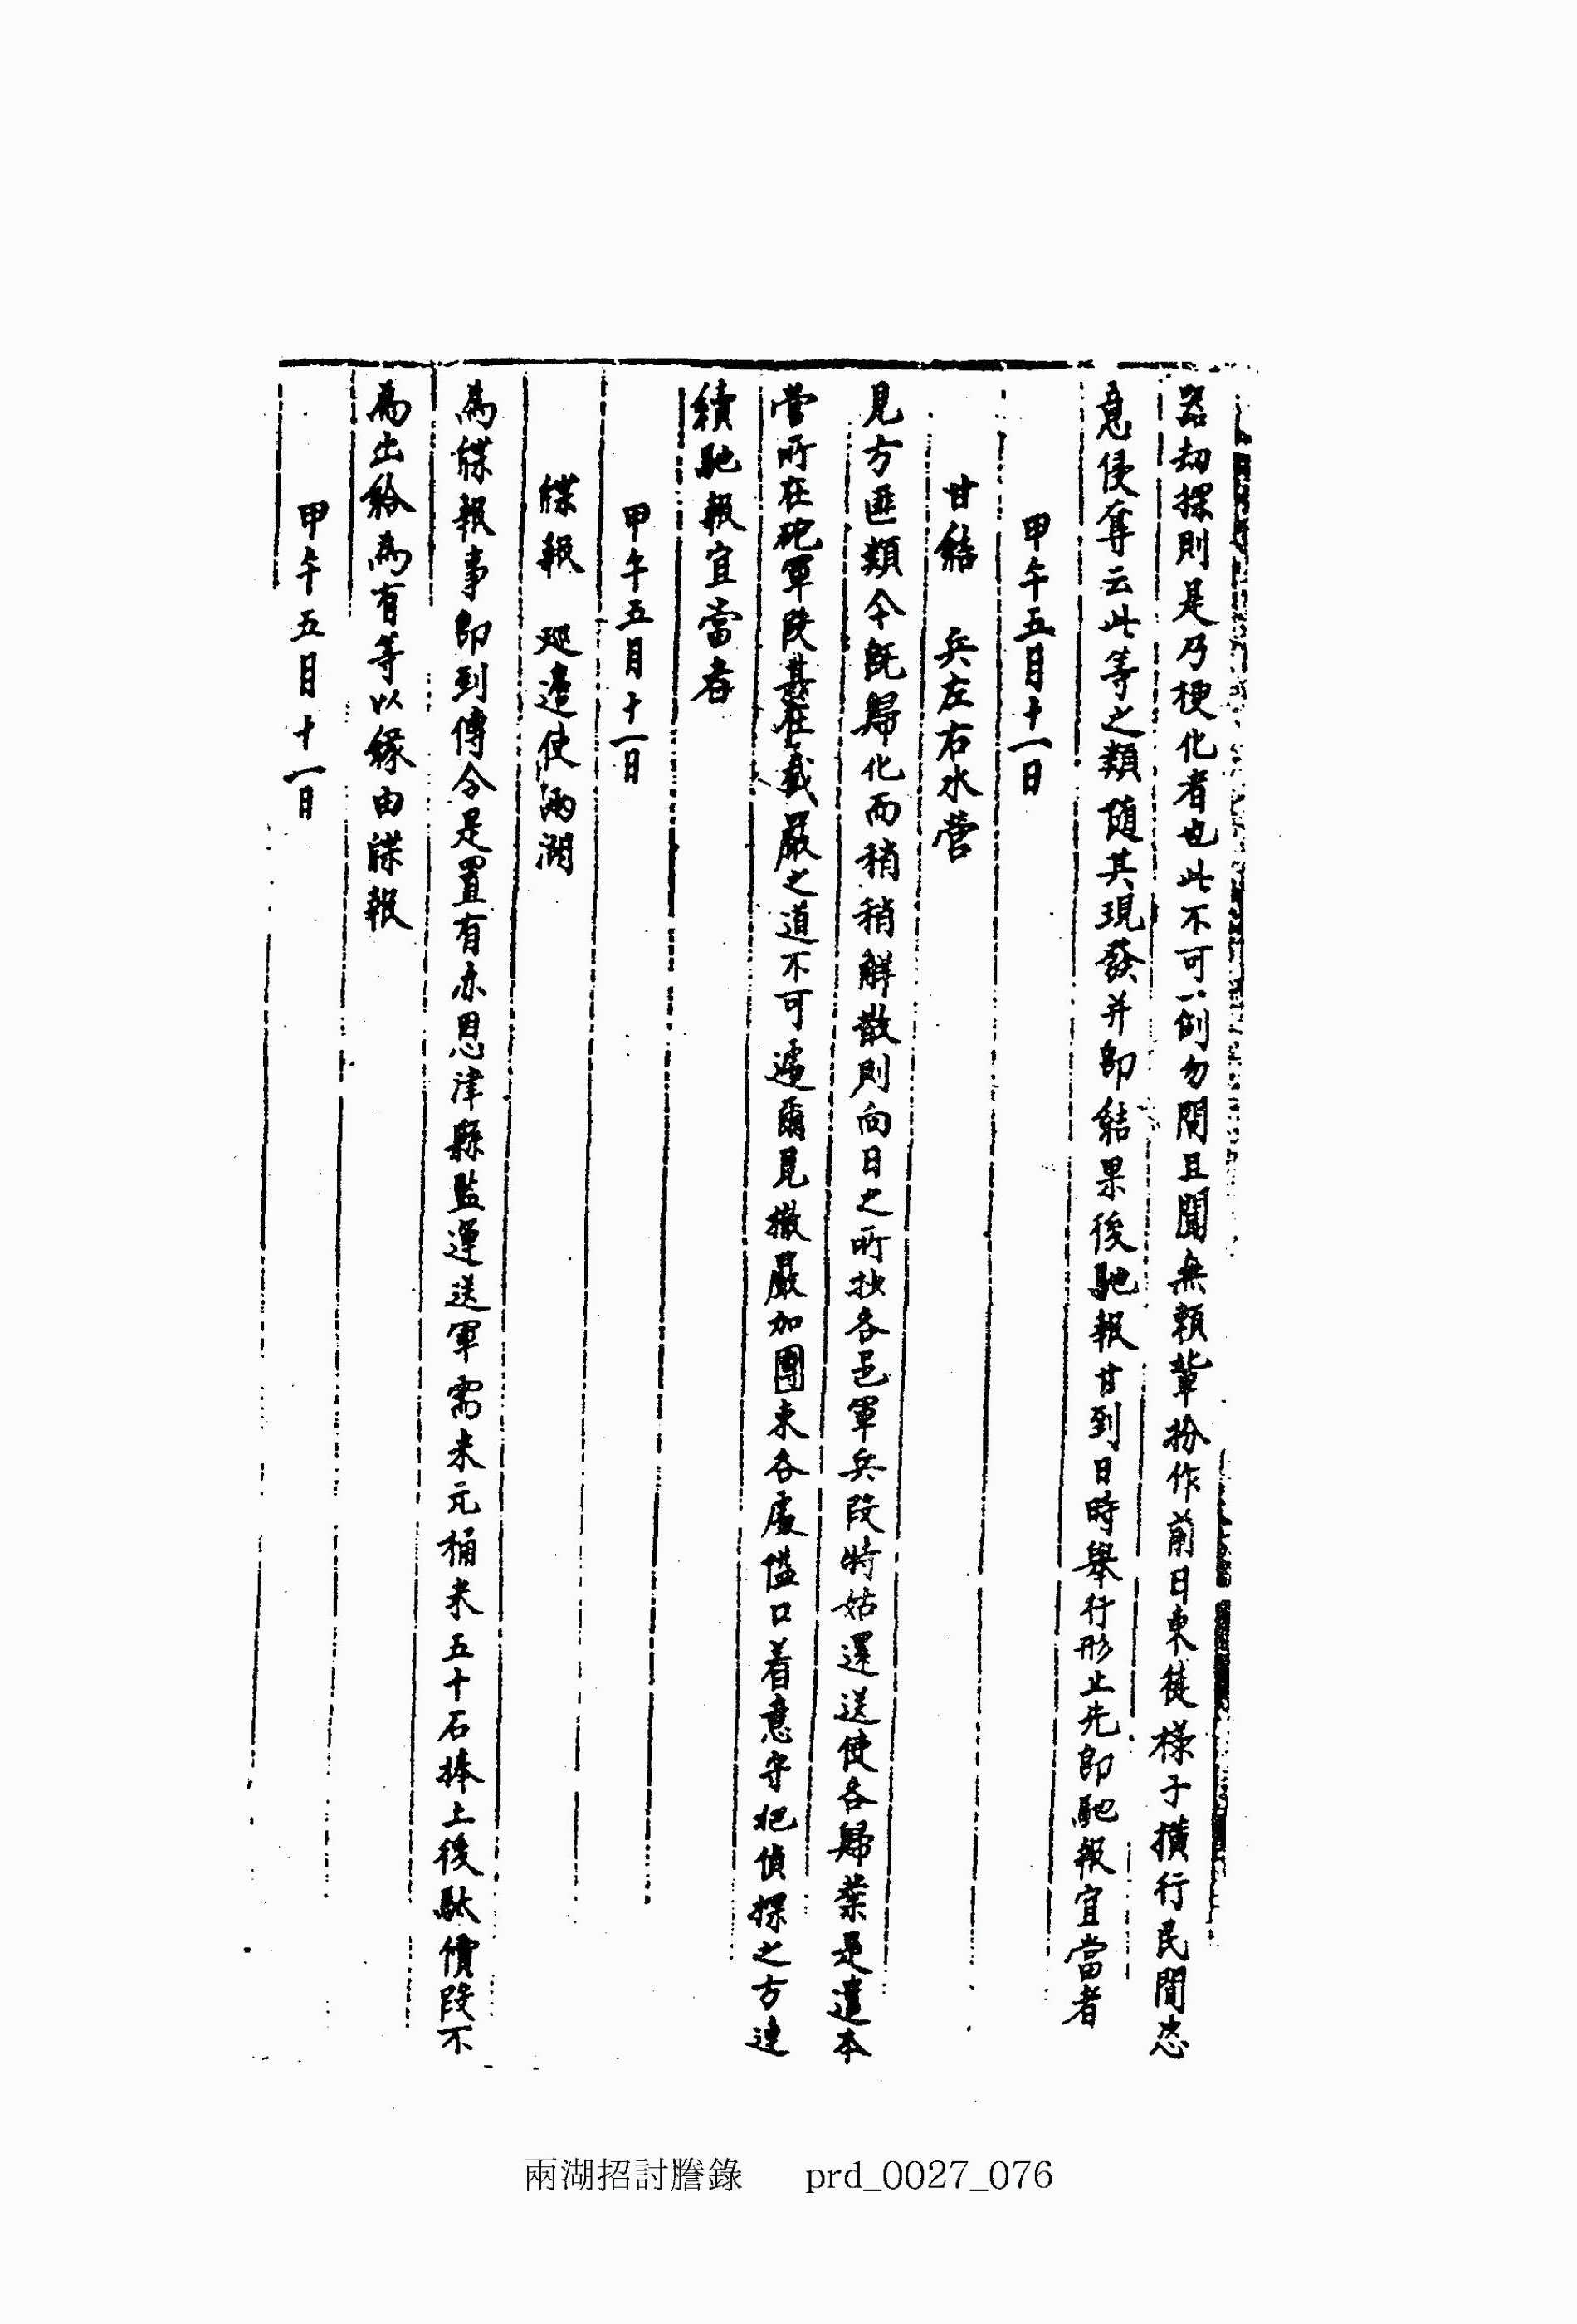 器刼探則是乃梗化者也此不可一例勿問且聞無賴輩扮作前日東徒樣子橫行民間恣
意侵奪云此等之類隨其現發并卽結果後馳報甘到日時擧行形止先卽馳報宜當者
甲午五月十一日
甘結 兵左右水營
見方匪類今旣歸化而稍稍解散則向日之所抄各邑軍兵段特姑還送使各歸業是遣本
營所在砲軍段其在戒嚴之道不可遽爾見撤嚴加團束各處隘口着意守把偵探之方連
續馳報宜當者
甲午五月十一日
牒報 廵邊使 兩湖
爲牒報事卽到傳令是置有亦恩津縣監運送軍需米元桶米五十石捧上後馱價段不
爲出給爲有等以緣由牒報
甲午五月十一日
兩湖招討謄錄 prd_0027_076